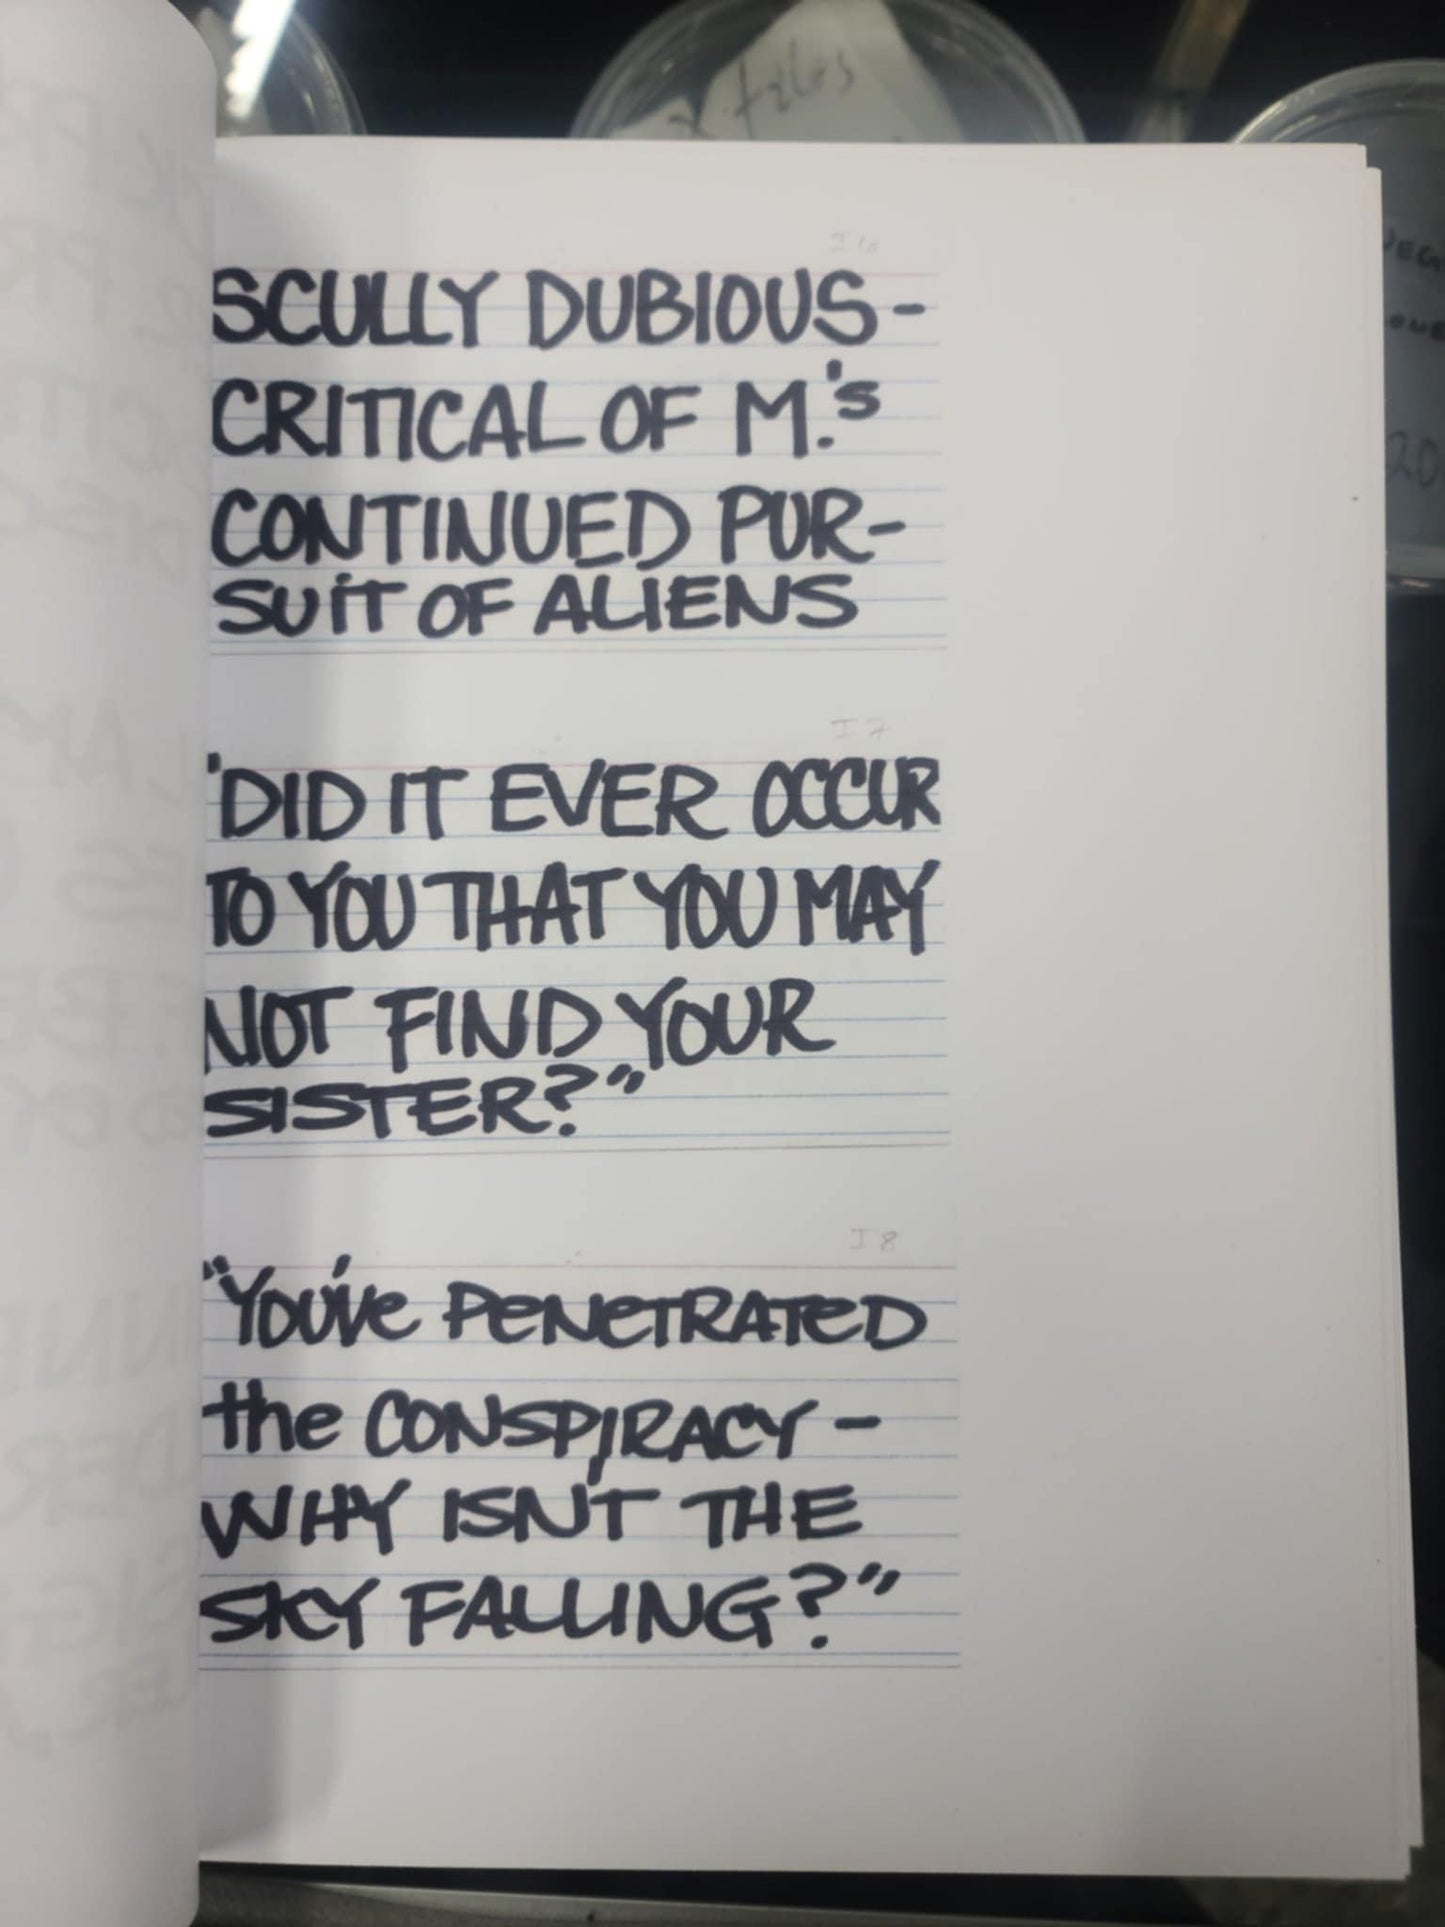 x files
I 6
SCULLY DUBIOUS-
CRITICAL OF M.'s
CONTINUED PUR-
SUIT OF ALIENS
I 7
"DID IT EVER OCCUR
TO YOU THAT YOU MAY
NOT FIND YOUR
SISTER?"
I 8
"YOU'Ve PeNeTRATeD
the CONSPIRACY -
WHY ISN'T THE
SKY FALLING?"